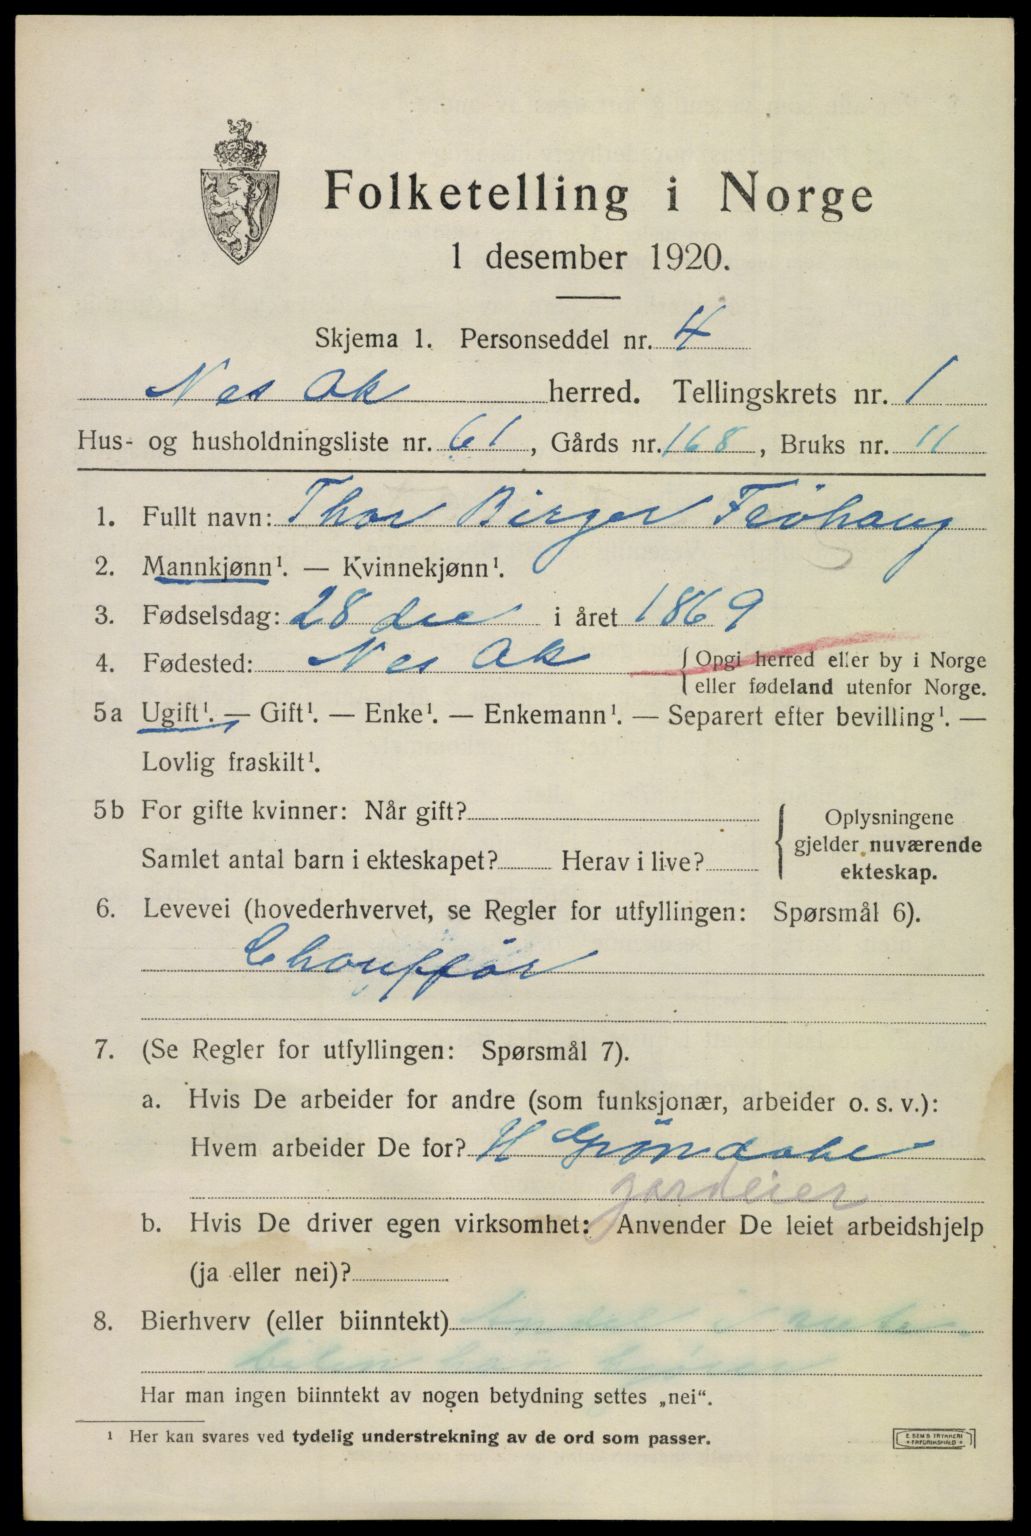 Folketelling i Norge
1 desember 1920.
Skjema 1. Personseddel nr. 4
Nes Ak herred. Tellingskrets nr. 1
Hus- og husholdningsliste nr. 61, Gårds nr. 168, Bruks nr. 11
1. Fullt navn: Thor Birger
2. Mannkjønn¹. — Kvinnekjønn¹.
3. Fødselsdag: 28 dec i året 1869
4. Fødested: Nes Ak {Opgi herred eller by i Norge
eller fødeland utenfor Norge.
5a Ugift¹. — Gift¹. — Enke¹. — Enkemann¹. — Separert efter bevilling¹. —
Lovlig fraskilt¹.
5b For gifte kvinner: Når gift?
Samlet antal barn i ekteskapet? Herav i live?
Oplysningene
gjelder nuværende
ekteskap.
6. Levevei (hovederhvervet, se Regler for utfyllingen: Spørsmål 6).
Chouffør
7. (Se Regler for utfyllingen: Spørsmål 7).
a. Hvis De arbeider for andre (som funksjonær, arbeider o. s. v.):
Hvem arbeider De for? H
gardeier
b. Hvis De driver egen virksomhet: Anvender De leiet arbeidshjelp
(ja eller nei)?
8. Bierhverv (eller biinntekt) i
Har man ingen biinntekt av nogen betydning settes „nei“.
¹ Her kan svares ved tydelig understrekning av de ord som passer.